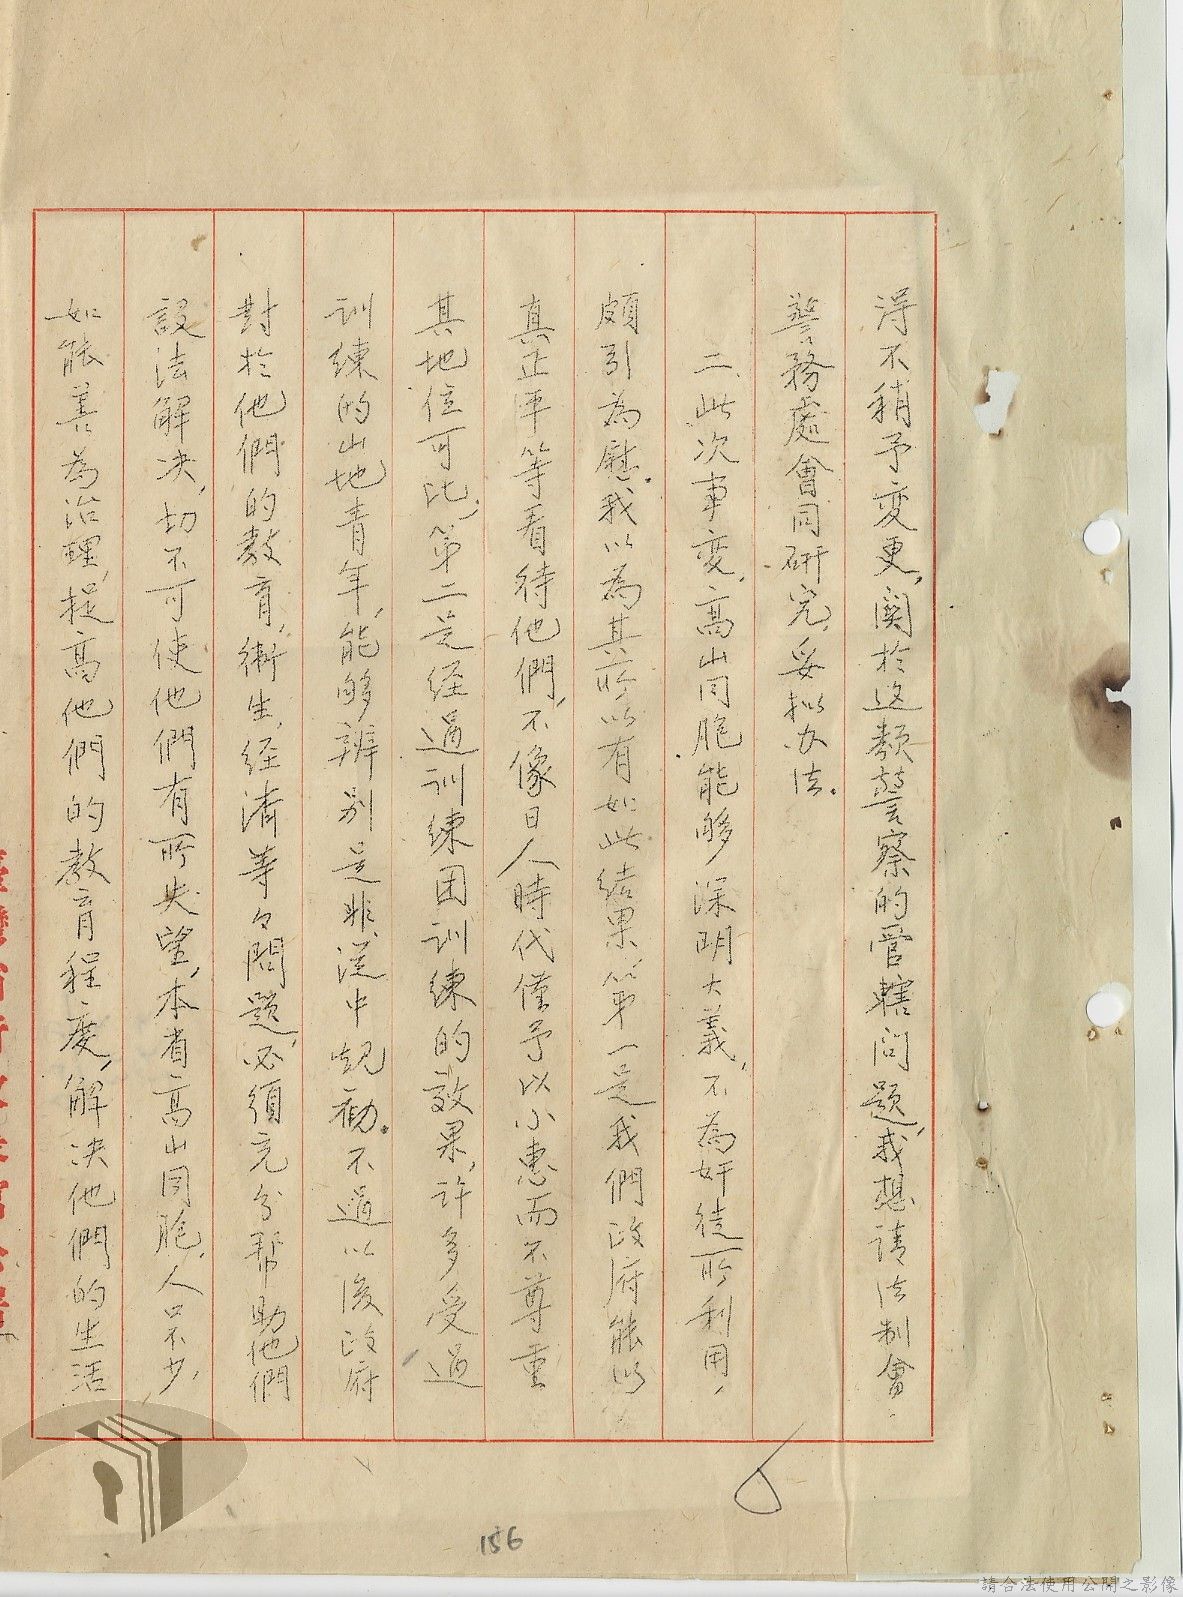 得不稍予变更，関於这類警察的管轄问题，我想请法制會
警務處會同研究，妥拟办法。
二、此次事変，高山同胞能够深明大義，不為奸徒所利用，
頗引為慰。我以為其所以有如此結果，第一是我們政府能以
真正平等看待他們，不像日人時代僅予以小惠而不尊重
其地位可比，第二是経過训練团训練的效果，许多受過
训練的山地青年，能够辨别是非，從中規勸。不過以後政府
對於他們的教育，衛生，経済等々問題，必須充分帮助他們
設法解决，切不可使他們有所失望，本省高山同胞，人口不少，
如能善為治理，提高他們的教育程度，解决他們的生活
156
請合法使用公開之影像